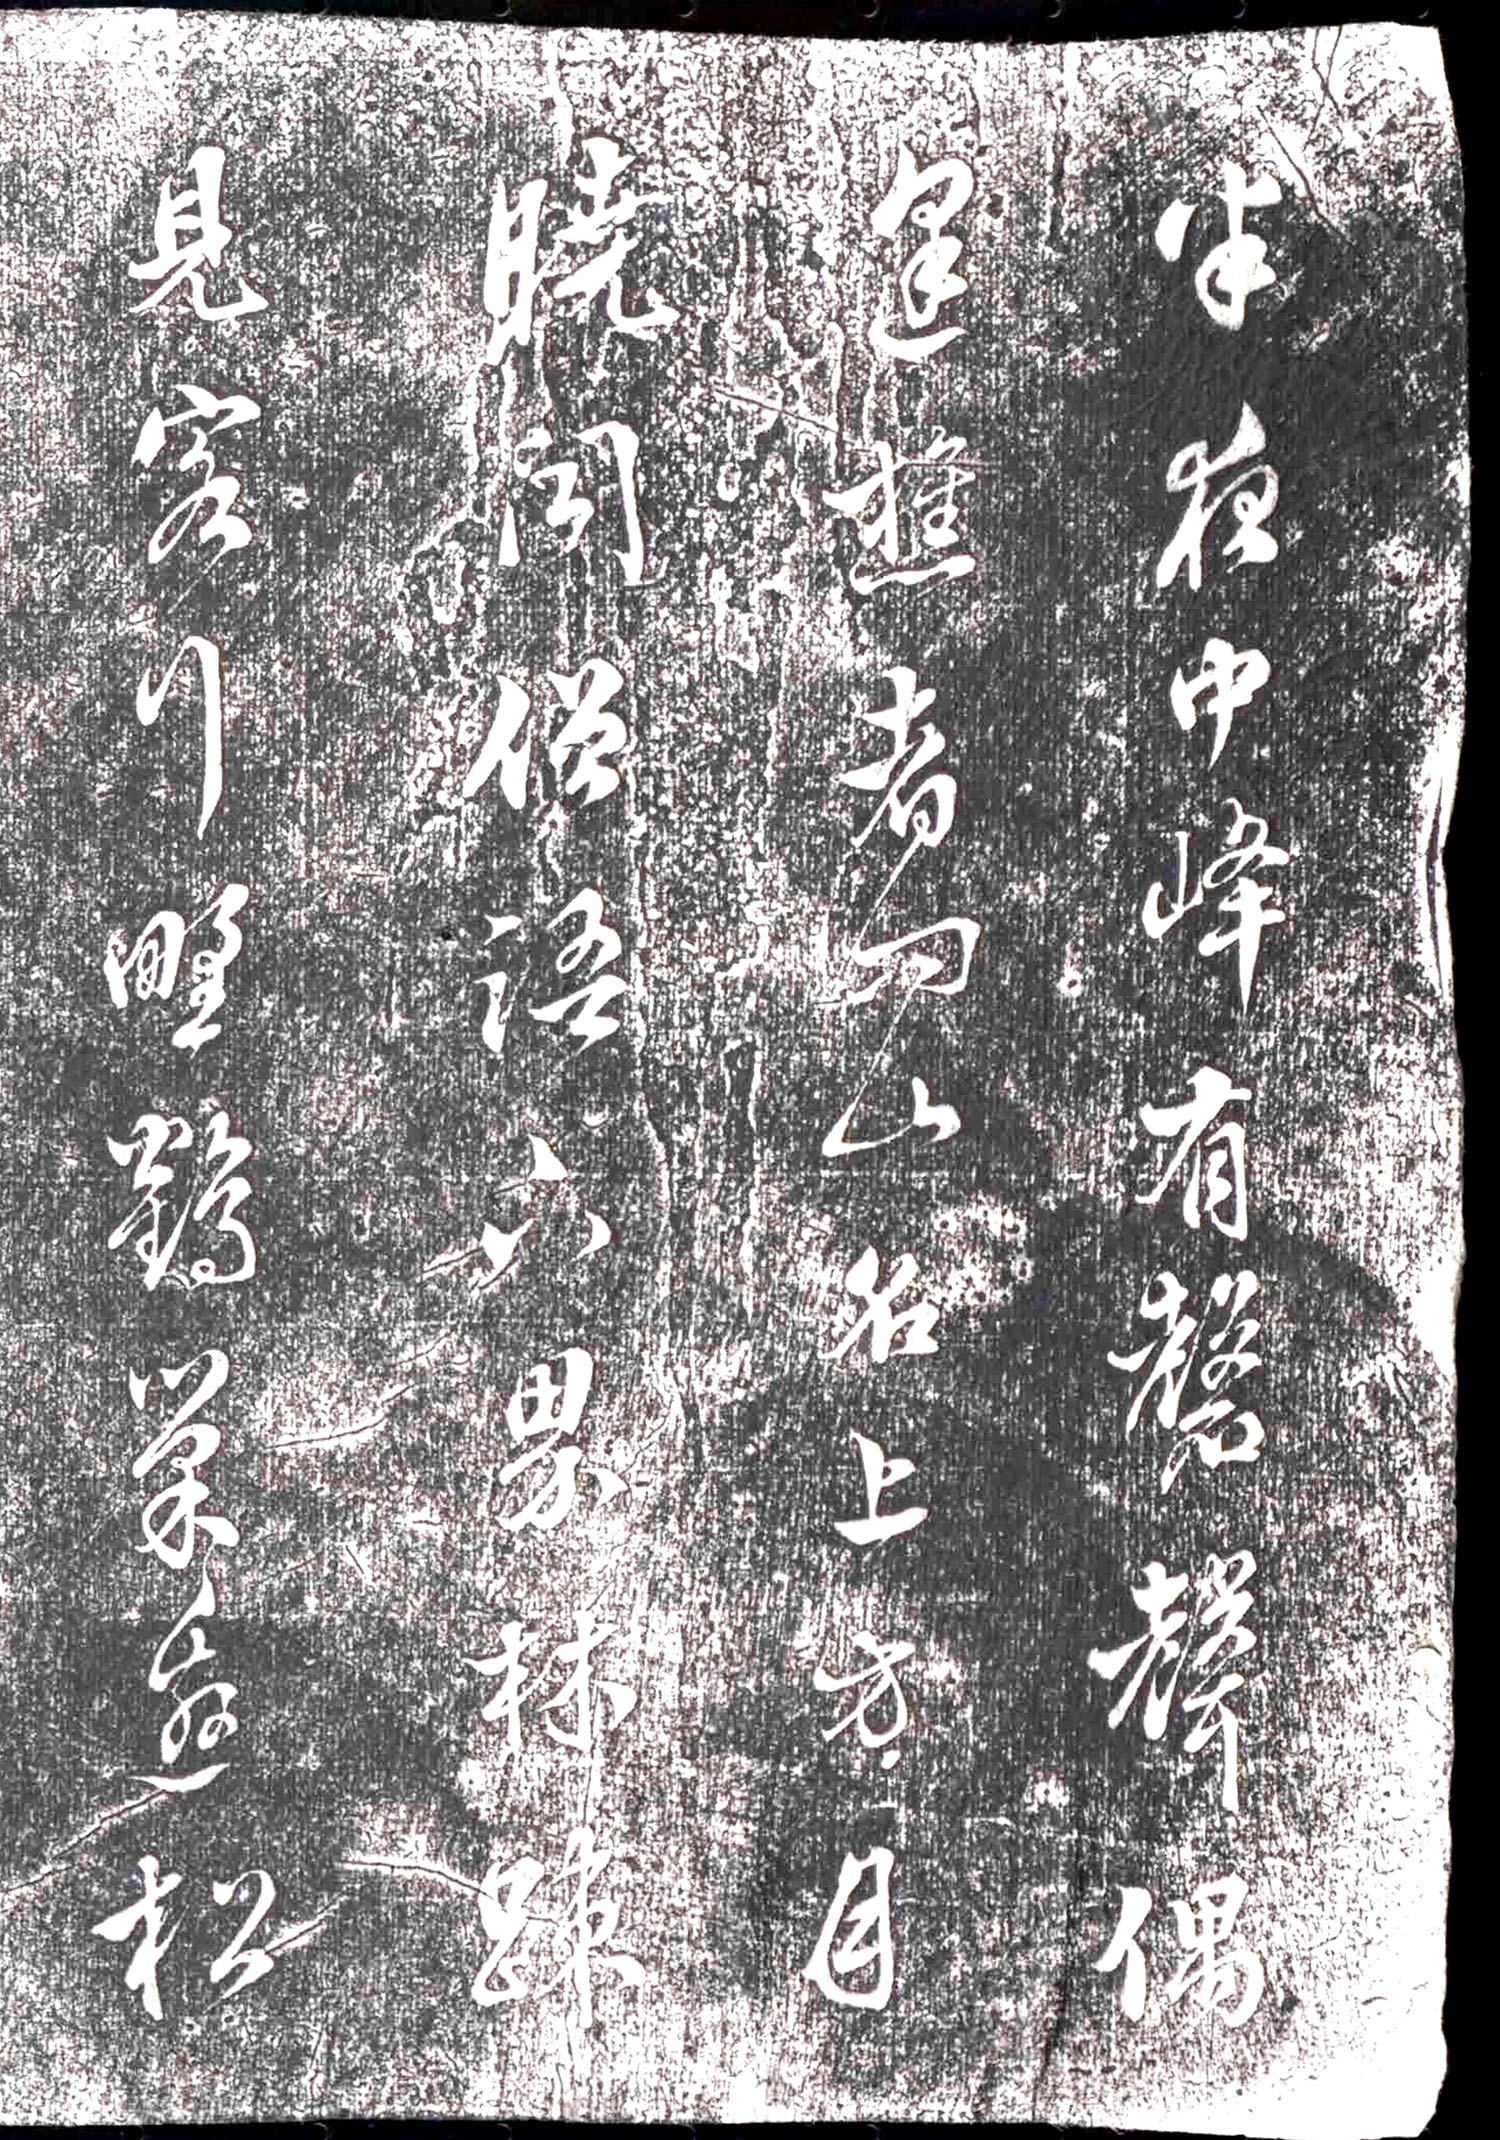 半夜中峰有磬聲偶
逢樵者問山名上方月
曉聞僧語下界林踈
見客行野鶴巢邊松